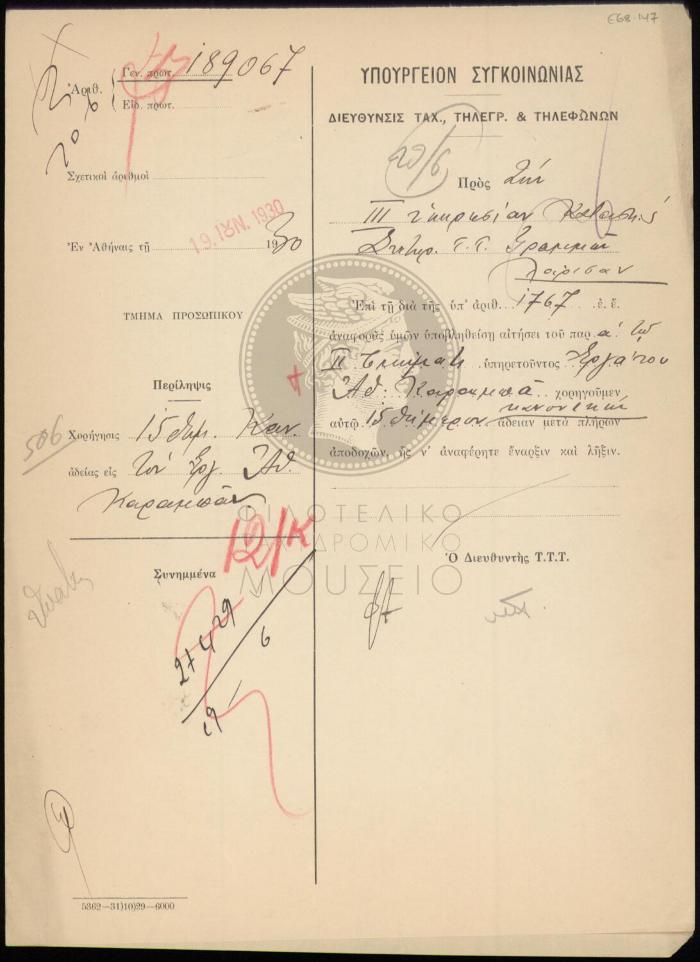 Ε68.147
Γεν. πρωτ. 189067
Ἀριθ.
Εἰδ. πρωτ.
Σχετικοὶ ἀριθμοὶ
Ἐν Ἀθήναις τῇ 19 ΙΟΥΝ. 1930 1930
ΤΜΗΜΑ ΠΡΟΣΩΠΙΚΟΥ
Περίληψις
506
Χορήγησις 15θημ. Καν.
ἀδείας εἰς τὸν Ἐργ. Ἀθ.
Καραμπᾶν
12/Κ
Συνημμένα
27 4 29
6
5362—31)10)29—6000
ΥΠΟΥΡΓΕΙΟΝ ΣΥΓΚΟΙΝΩΝΙΑΣ
ΔΙΕΥΘΥΝΣΙΣ ΤΑΧ., ΤΗΛΕΓΡ. & ΤΗΛΕΦΩΝΩΝ
20/6
Πρὸς Τὴν
ΙΙΙ Ὑπηρεσίαν Κατασκ/ῆς
Συντηρ. Τ.Τ. Γραμμῶν
Λάρισαν
Ἐπὶ τῇ διὰ τῆς ὑπ' ἀριθ. 1767 ἐ. ἔ.
ἀναφορᾶς ὑμῶν ὑποβληθείσῃ αἰτήσει τοῦ παρ' τῷ
ΙΙ Τμήματι ὑπηρετοῦντος Ἐργάτου
Ἀθ. Καραμπᾶ χορηγοῦμεν
αὐτῷ 15θήμερον κανονικὴν ἄδειαν μετὰ πλήρων
ἀποδοχῶν, ἧς ν' ἀναφέρητε ἔναρξιν καὶ λῆξιν.
Ὁ Διευθυντὴς Τ.Τ.Τ.
ΦΙΛΟΤΕΛΙΚΟ
ΤΑΧΥΔΡΟΜΙΚΟ
ΜΟΥΣΕΙΟ